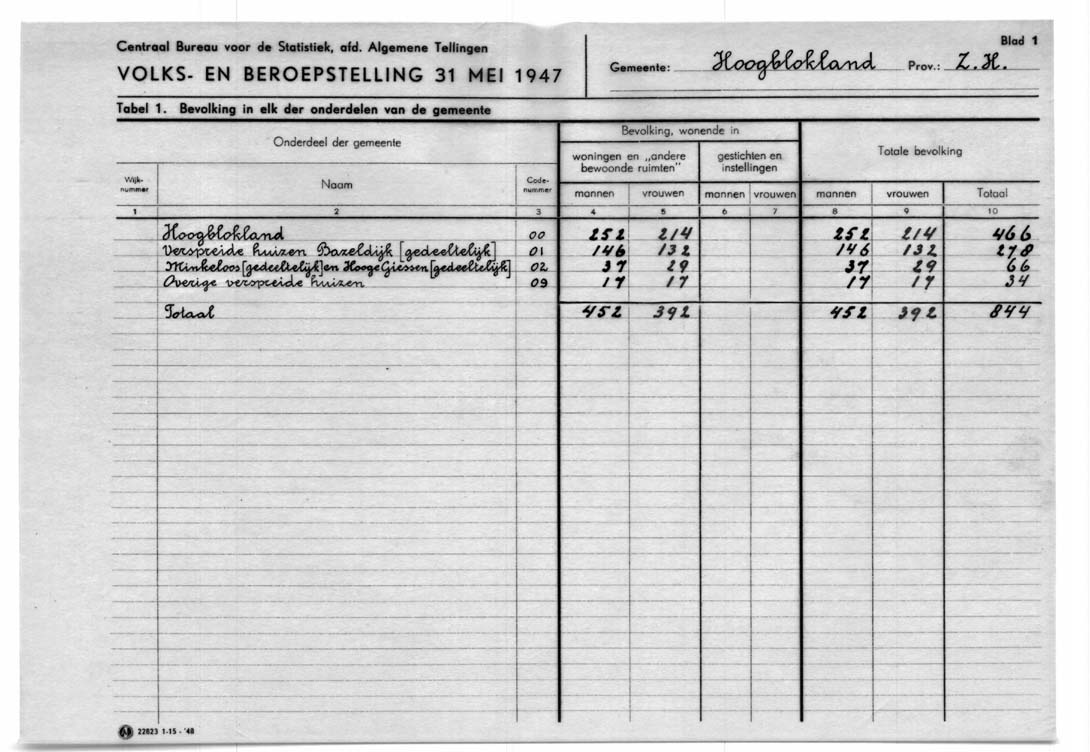 Centraal Bureau voor de Statistiek, afd. Algemene Tellingen
VOLKS- EN BEROEPSTELLING 31 MEI 1947
Gemeente: Hoogblokland Prov.: Z.H.
Blad 1
Tabel 1. Bevolking in elk der onderdelen van de gemeente
Onderdeel der gemeente
Bevolking, wonende in
Totale bevolking
woningen en „andere bewoonde ruimten”
gestichten en instellingen
Wijk-nummer Naam Code-nummer mannen vrouwen mannen vrouwen mannen vrouwen Totaal
1 2 3 4 5 6 7 8 9 10
Hoogblokland 00 252 214 252 214 466
Verspreide huizen Bazeldijk [gedeeltelijk] 01 146 132 146 132 278
Minkeloos [gedeeltelijk] en Hooge Giessen [gedeeltelijk] 02 37 29 37 29 66
Overige verspreide huizen 09 17 17 17 17 34
Totaal 452 392 452 392 844
22823 1-15 - '48